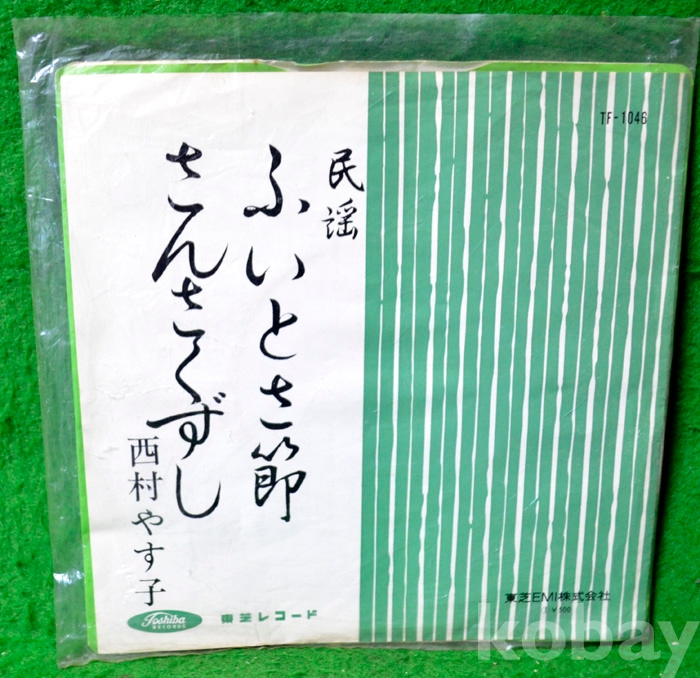 TF-1046
民謡
ふいとさ節
さんさくずし
西村やす子
Toshiba
RECORDS
東芝レコード
東芝EMI株式会社
¥500
kobay